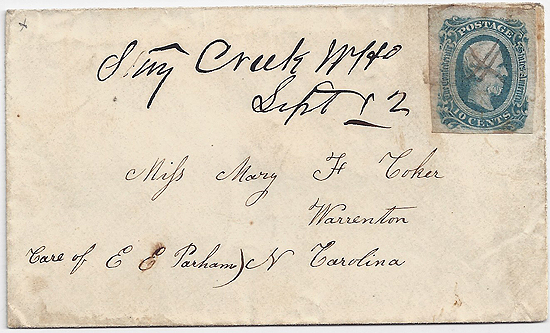 Stony Creek Whs
Sept 12
POSTAGE
Confederate States America
10 CENTS
Miss Mary F Coher
Warrenton
Care of E E Parham) N Carolina